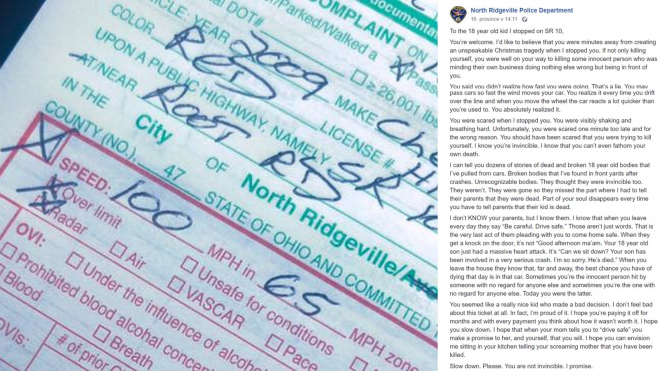 COMPLAINT ON
documental
al DOT#
Parked/Walked a
Pass
≥ 26,001 lbs
CLE: YEAR 2009
RED
MAKE Che
UPON A PUBLIC HIGHWAY, NAMELY SR 10
LICENSE # H
AT/NEAR ROOT RD
IN THE City OF North Ridgeville/
COUNTY (NO.) 47 STATE OF OHIO AND COMMITTED
SPEED: 100 MPH in 65 MPH zone
Over limit
Unsafe for conditions
Radar
Air
VASCAR
Pace
OVI:
Under the influence of alcohol
Prohibited blood alcohol concen
Blood
Breath
OVIs:
# of prior O
North Ridgeville Police Department
16. prosince v 14:11
To the 18 year old kid I stopped on SR 10,
You're welcome. I'd like to believe that you were minutes away from creating
an unspeakable Christmas tragedy when I stopped you. If not only killing
yourself, you were well on your way to killing some innocent person who was
minding their own business doing nothing else wrong but being in front of
you.
You said you didn't realize how fast you were going. That's a lie. You may
pass cars so fast the wind moves your car. You realize it every time you drift
over the line and when you move the wheel the car reacts a lot quicker than
you're used to. You absolutely realized it.
You were scared when I stopped you. You were visibly shaking and
breathing hard. Unfortunately, you were scared one minute too late and for
the wrong reason. You should have been scared that you were trying to kill
yourself. I know you're invincible. I know that you can't even fathom your
own death.
I can tell you dozens of stories of dead and broken 18 year old bodies that
I've pulled from cars. Broken bodies that I've found in front yards after
crashes. Unrecognizable bodies. They thought they were invincible too.
They weren't. They were gone so they missed the part where I had to tell
their parents that they were dead. Part of your soul disappears every time
you have to tell parents that their kid is dead.
I don't KNOW your parents, but I know them. I know that when you leave
every day they say "Be careful. Drive safe." Those aren't just words. That is
the very last act of them pleading with you to come home safe. When they
get a knock on the door, it's not "Good afternoon ma'am. Your 18 year old
son just had a massive heart attack. It's "Can we sit down? Your son has
been involved in a very serious crash. I'm so sorry. He's died." When you
leave the house they know that, far and away, the best chance you have of
dying that day is in that car. Sometimes you're the innocent person hit by
someone with no regard for anyone else and sometimes you're the one with
no regard for anyone else. Today you were the latter.
You seemed like a really nice kid who made a bad decision. I don't feel bad
about this ticket at all. In fact, I'm proud of it. I hope you're paying it off for
months and with every payment you think about how it wasn't worth it. I hope
you slow down. I hope that when your mom tells you to "drive safe" you
make a promise to her, and yourself, that you will. I hope you can envision
me sitting in your kitchen telling your screaming mother that you have been
killed.
Slow down. Please. You are not invincible. I promise.